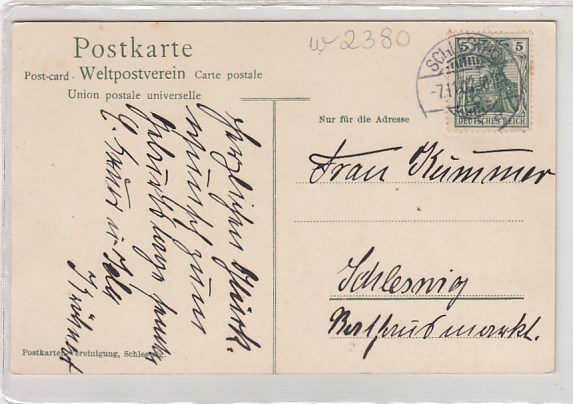 Postkarte
Post-card - Weltpostverein Carte postale
Union postale universelle
w 2380
SCHLESWIG
-7.11.
5 5
DEUTSCHES REICH
Nur für die Adresse
Frau Kummer
Schleswig
Rathausmarkt.
Herzlichen Glück-
wunsch zum
Geburtstage sendet
Postkarten-Vereinigung, Schleswig.